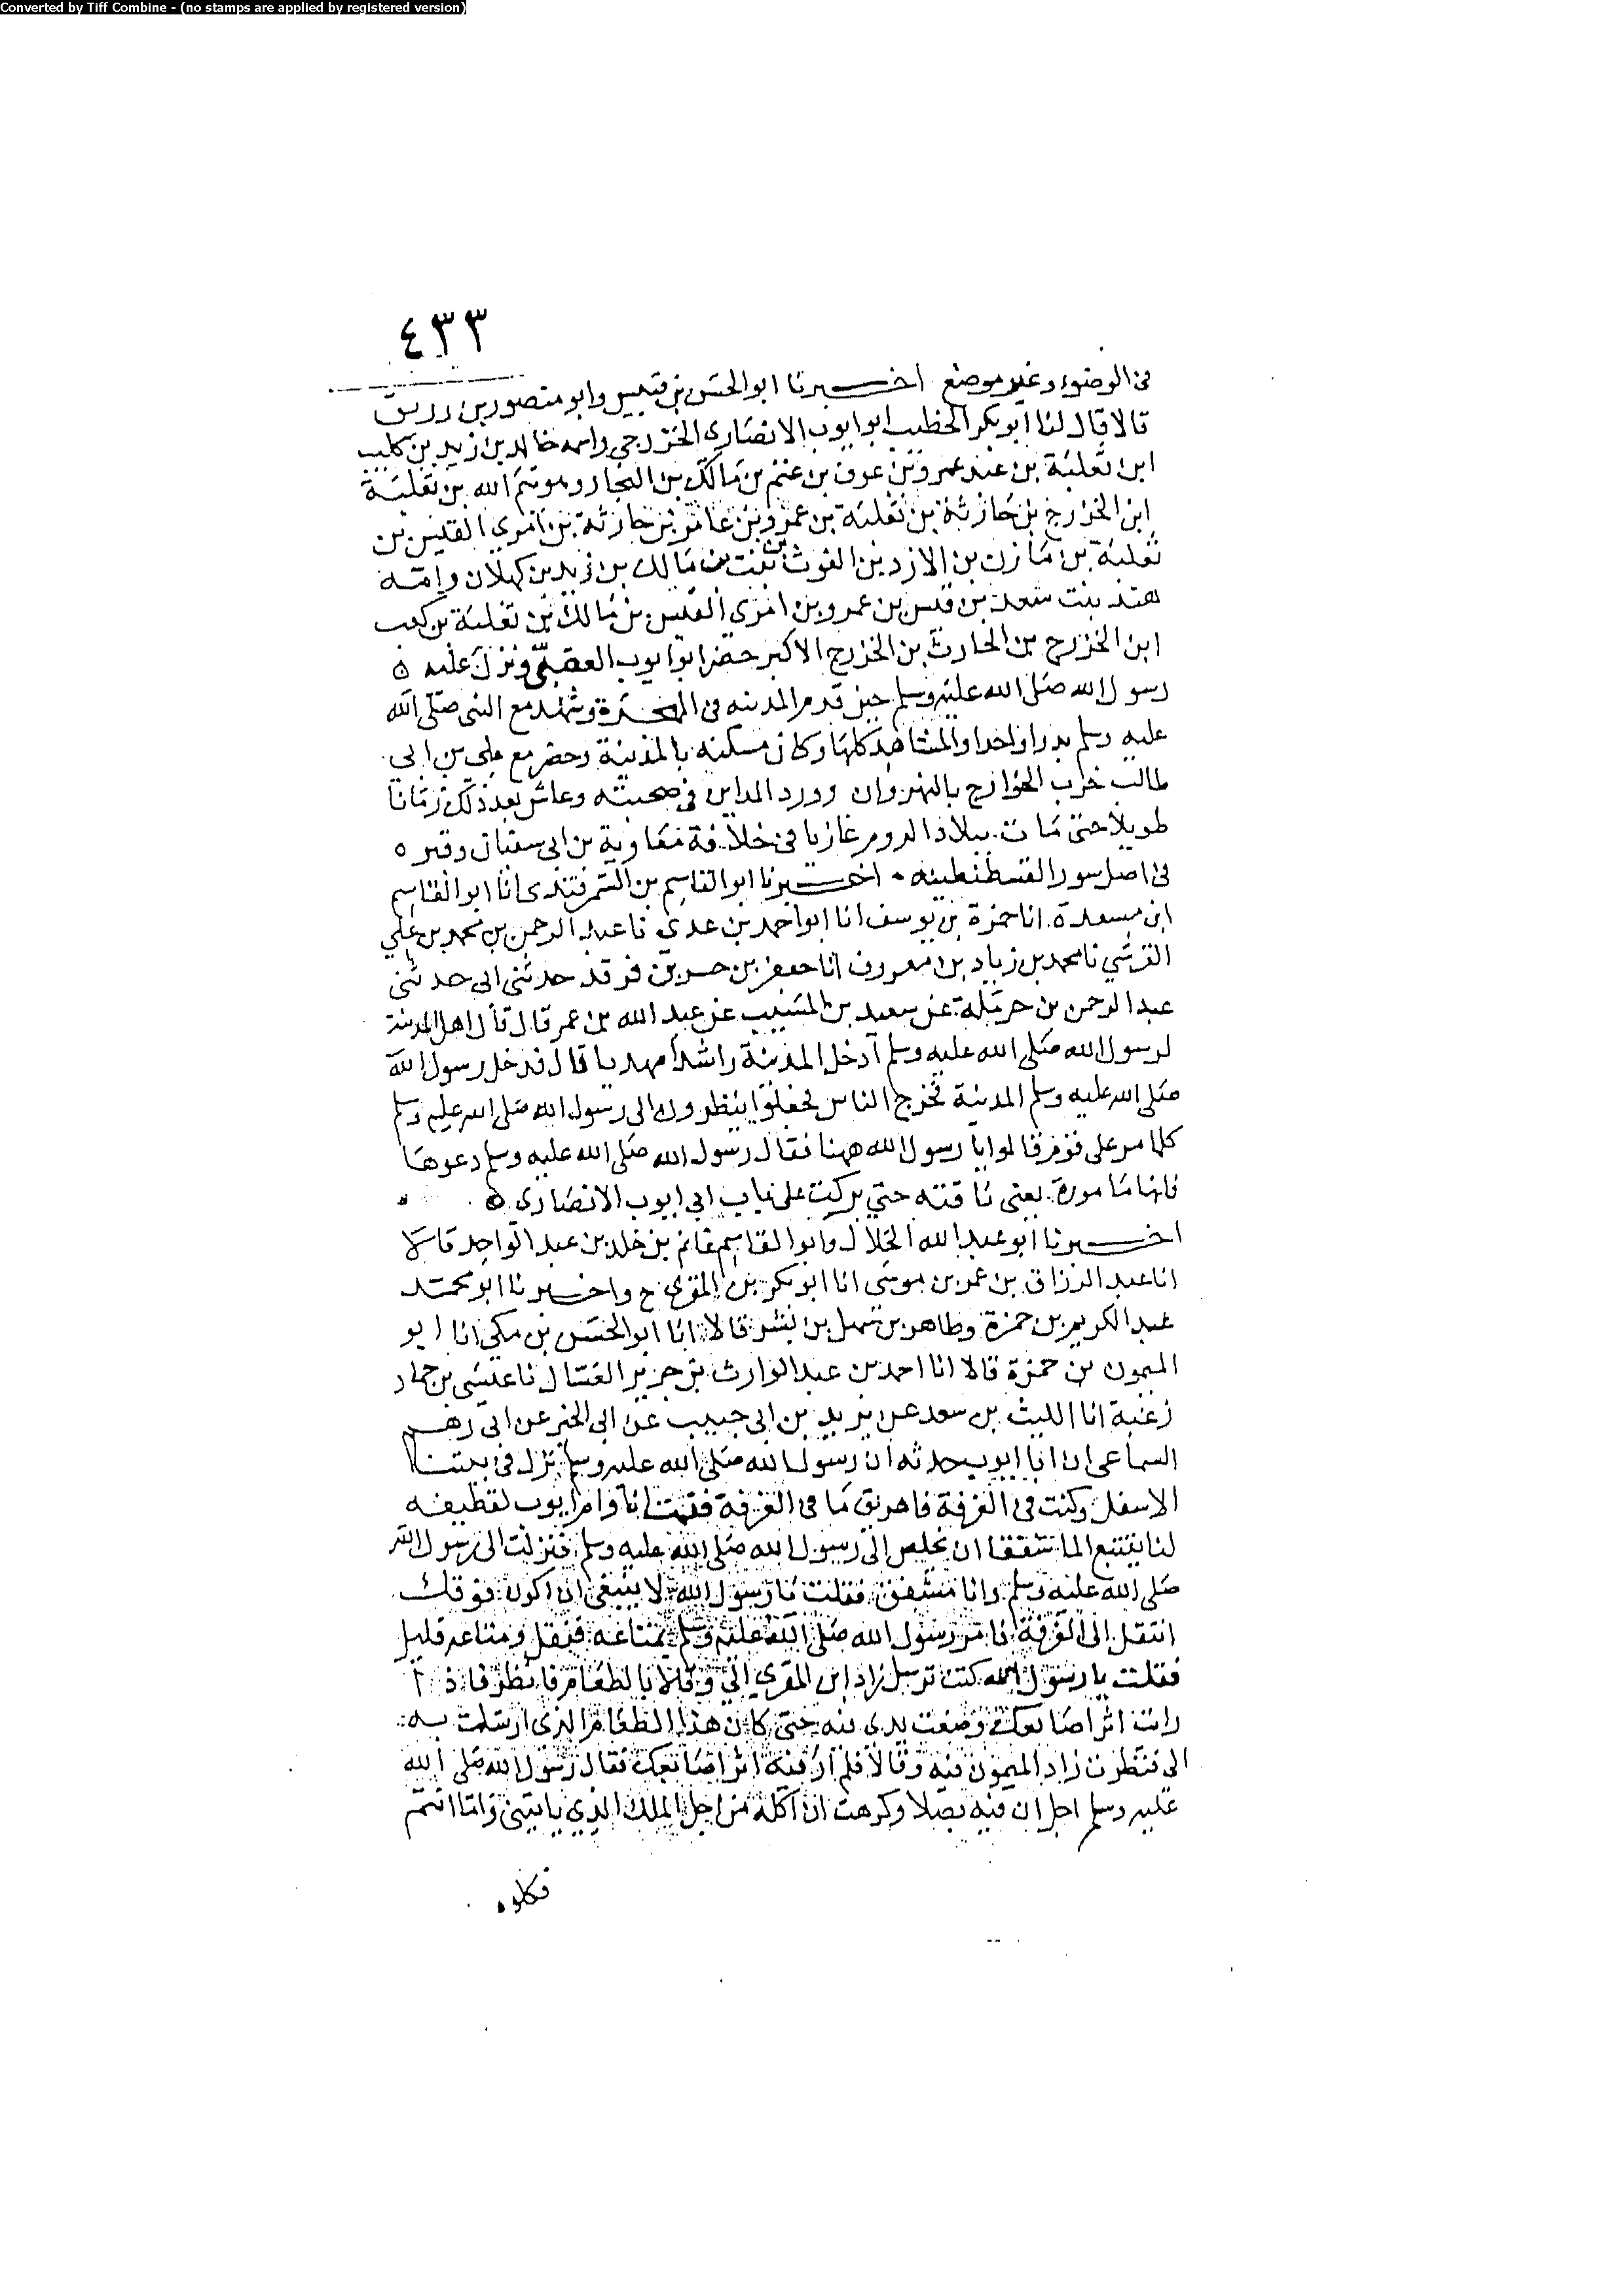 Converted by Tiff Combine - (no stamps are applied by registered version)
٤٣٣
في الوضوء وغير موضع اخبرنا ابو الحسن بن قبيس وابو منصور بن زريق
قالا قال لنا ابو بكر الخطيب ابو ايوب الانصاري الخزرجي واسمه خالد بن زيد بن كليب
ابن ثعلبة بن عبد عمرو بن عوف بن غنم بن مالك بن النجار وهو تيم الله بن ثعلبة
ابن الخزرج بن حارثة بن ثعلبة بن عمرو بن عامر بن حارثة بن امري القيس بن
ثعلبة بن مازن بن الازد بن الغوث بن نبت بن مالك بن زيد بن كهلان وامه
هند بنت سعد بن قيس بن عمرو بن امري القيس بن مالك بن ثعلبة بن كعب
ابن الخزرج بن الحارث بن الخزرج الاكبر حضر ابو ايوب العقبة ونزل عليه ه
رسول الله صلى الله عليه وسلم حين قدم المدينه في الهجرة وشهد مع النبي صلى الله
عليه وسلم بدرا واحدا والمشاهد كلها وكان مسكنه بالمدينة وحضر مع علي بن ابي
طالب حرب الخوارج بالنهروان وورد المداين في صحبته وعاش بعد ذلك زمانا
طويلا حتى مات ببلاد الروم غازيا في خلافة معاوية بن ابي سفيان وقبره
في اصل سور القسطنطينه اخبرنا ابو القاسم بن السمرقندي انا ابو القاسم
ابن مسعدة انا حمزة بن يوسف انا ابو احمد بن عدي نا عبد الرحمن بن محمد بن علي
القرشي نا محمد بن زياد بن معروف انا جعفر بن حسن بن فرقد حدثني ابي حدثني
عبد الرحمن بن حرملة عن سعيد بن المسيب عن عبد الله بن عمر قال قال اهل المدينة
لرسول الله صلى الله عليه وسلم ادخل المدينة راشدا مهديا قال فدخل رسول الله
صلى الله عليه وسلم المدينة فخرج الناس فجعلوا ينظرون الى رسول الله صلى الله عليه وسلم
كلما مر على قوم قالوا يا رسول الله ههنا فقال رسول الله صلى الله عليه وسلم دعوها
فانها مامورة يعني ناقته حتي بركت على باب ابي ايوب الانصاري ه
اخبرنا ابو عبد الله الخلال وابو القاسم غانم بن خلد بن عبد الواحد قالا
انا عبد الرزاق بن عمر بن موسى انا ابو بكر بن المقري ح واخبرنا ابو محمد
عبد الكريم بن حمزة وطاهر بن سهل بن بشر قالا انا ابو الحسن بن مكي انا ابو
الميمون بن حمزة قالا انا احمد بن عبد الوارث بن جرير العسال نا عيسى بن حماد
زغبة انا الليث بن سعد عن يزيد بن ابي حبيب عن ابي الخير عن ابي رهم
السماعي ان ابا ايوب حدثه ان رسول الله صلى الله عليه وسلم نزل في بيتنا
الاسفل وكنت في الغرفة فاهريق ما في الغرفة فقمت انا وام ايوب لقطيفه
لنا نتتبع الما شفقا ان يخلص الى رسول الله صلى الله عليه وسلم فنزلت الى رسول الله
صلى الله عليه وسلم وانا مشفق فقلت يا رسول الله لا ينبغي ان اكون فوقك
انتقل الى الغرفة فامر رسول الله صلى الله عليه وسلم بمتاعه فنقل ومتاعه قليل
فقلت يا رسول الله كنت ترسل زاد ابن المقري الي وقالا بالطعام فانظر فاذا
رايت اثر اصابعك وضعت يدي فيه حتى كان هذا الطعام الذي ارسلت به
الي فنظرت زاد الميمون فيه وقالا فلم ار فيه اثر اصابعك فقال رسول الله صلى الله
عليه وسلم اجل ان فيه بصلا وكرهت ان آكله من اجل الملك الذي ياتيني واما انتم
فكلوه